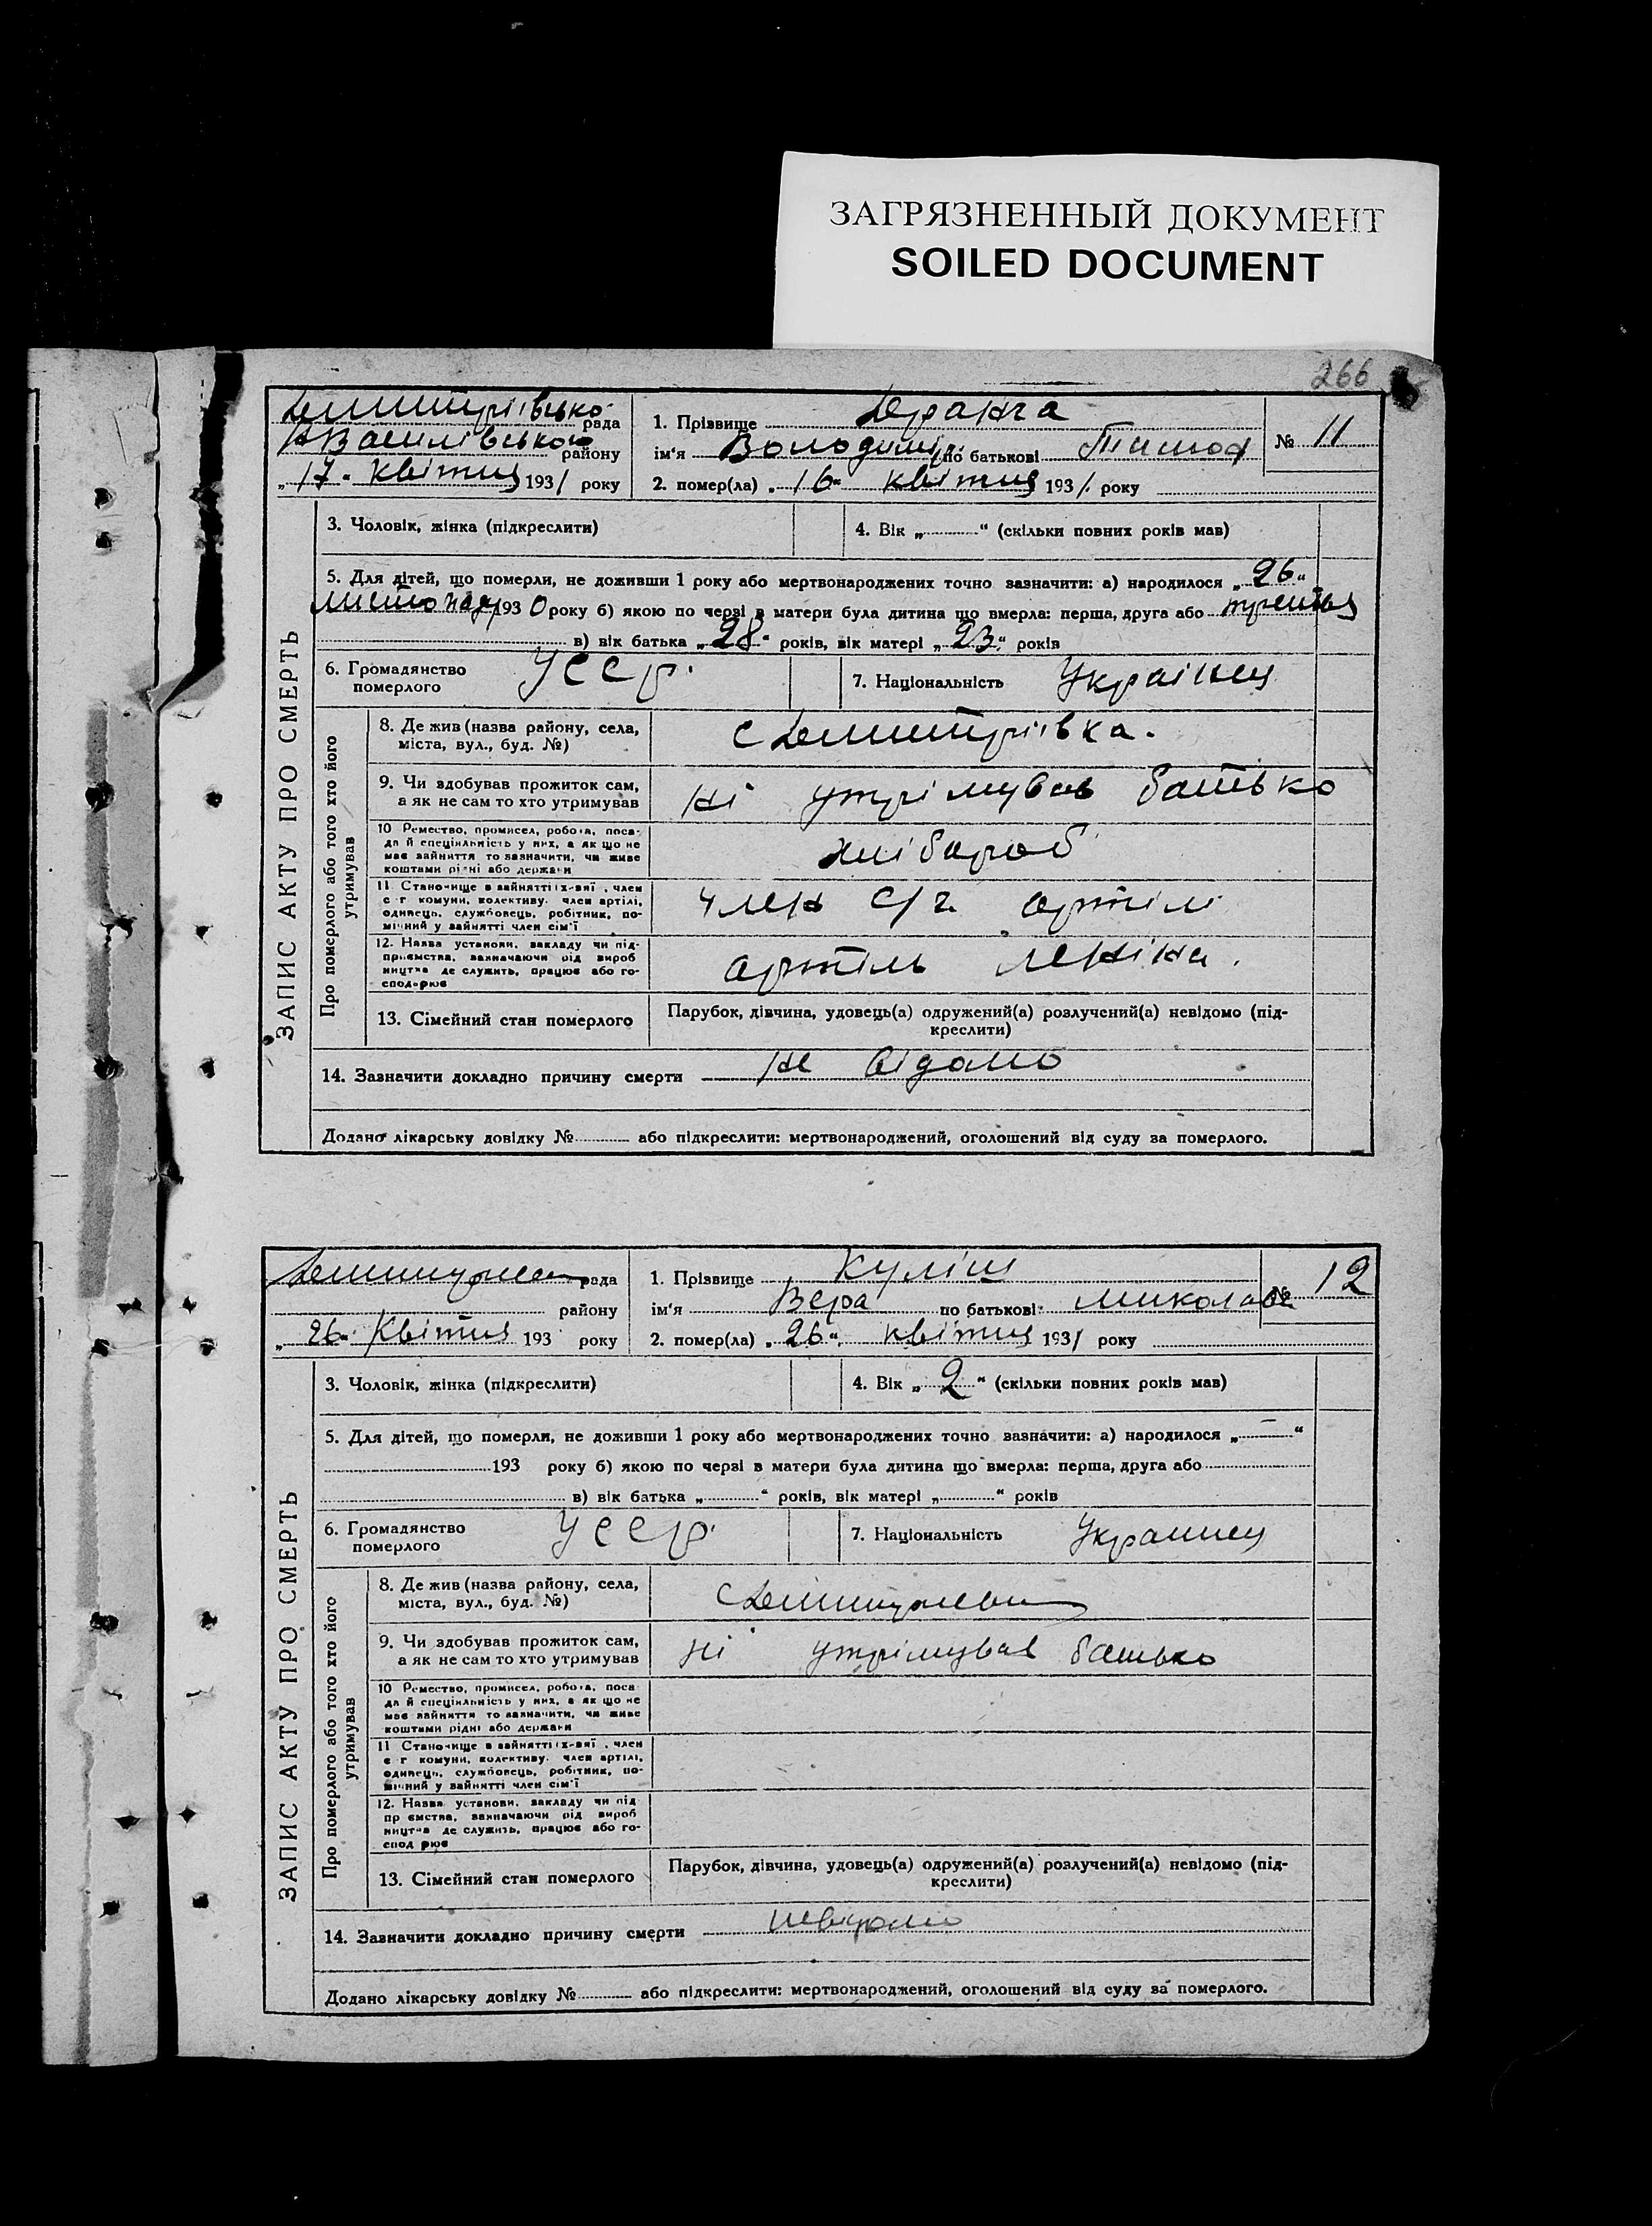 ЗАГРЯЗНЕННЫЙ ДОКУМЕНТ
SOILED DOCUMENT
266
Дмитріївсько рада
НВасилівського району
„17“ квітня 1931 року
1. Прізвище Дранга
ім'я Володимир по батькові
№ 11
2. помер(ла) „16“ квітня 1931 року
ЗАПИС АКТУ ПРО СМЕРТЬ
3. Чоловік, жінка (підкреслити)
4. Вік „ “ (скільки повних років мав)
5. Для дітей, що померли, не доживши 1 року або мертвонароджених точно зазначити: а) народилося „26“
листопад 1930 року б) якою по черзі в матери була дитина що вмерла: перша, друга або третья
в) вік батька „28“ років, вік матері „23“ років
6. Громадянство
померлого
УССР.
7. Національність Українец
Про померлого або того хто його
утримував
8. Де жив (назва району, села,
міста, вул., буд. №)
с Дмитріївка.
9. Чи здобував прожиток сам,
а як не сам то хто утримував
Ні утрімував батько
10 Ремество, промисел, робота, поса-
да й спеціяльність у них, а як що не
має зайняття то зазначити, чи живе
коштами рідні або держави
хлібороб
11 Становище в зайнятті: х-зяї , член
с г комуни, колективу, член артілі,
одинець, службовець, робітник, по-
мічний у зайнятті член сім'ї
член с/г. артілі
12. Назва установи, закладу чи під-
приємства, зазначаючи рід вироб
ництва де служить, працює або го-
сподарює
артіль Леніна.
13. Сімейний стан померлого
Парубок, дівчина, удовець(а) одружений(а) розлучений(а) невідомо (під-
креслити)
14. Зазначити докладно причину смерти Не відомо
Додано лікарську довідку № або підкреслити: мертвонароджений, оголошений від суду за померлого.
рада
району
„26“ Квітня 193 року
1. Прізвище Куліш
ім'я Вера по батькові Миколаев
№ 12
2. помер(ла) „26“ квітня 1931 року
ЗАПИС АКТУ ПРО СМЕРТЬ
3. Чоловік, жінка (підкреслити)
4. Вік „2“ (скільки повних років мав)
5. Для дітей, що померли, не доживши 1 року або мертвонароджених точно зазначити: а) народилося „—“
193 року б) якою по черзі в матери була дитина що вмерла: перша, друга або
в) вік батька „ “ років, вік матері „ “ років
6. Громадянство
померлого
УССР.
7. Національність Украинец
Про померлого або того хто його
утримував
8. Де жив (назва району, села,
міста, вул., буд. №)
с
9. Чи здобував прожиток сам,
а як не сам то хто утримував
Ні утрімував батько
10 Ремество, промисел, робота, поса
да й спеціяльність у них, а як що не
має зайняття то зазначити, чи живе
коштами рідні або держави
11 Становище в зайнятті: х-зяї , член
с г комуни, колективу, член артілі,
одинець, службовець, робітник, по-
мічний у зайнятті член сім'ї
12. Назва установи, закладу чи під
пр ємства, зазначаючи рід вироб
ництва де служить, працює або го-
спод рює
13. Сімейний стан померлого
Парубок, дівчина, удовець(а) одружений(а) розлучений(а) невідомо (під-
креслити)
14. Зазначити докладно причину смерти невідомо
Додано лікарську довідку № або підкреслити: мертвонароджений, оголошений від суду за померлого.